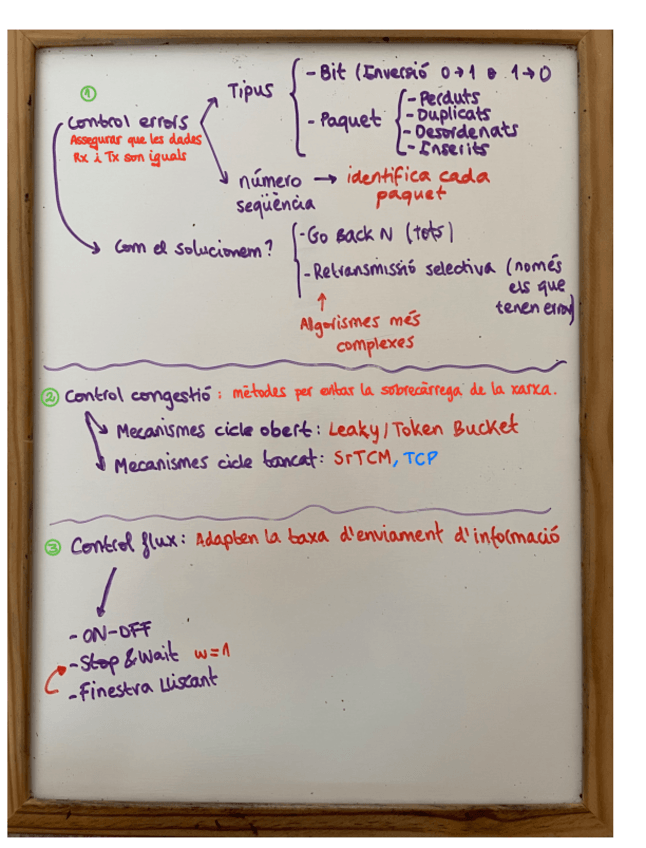 1
Control errors
Assegurar que les dades
Rx i Tx son iguals
Tipus
- Bit (Inversió 0→1 o 1→0
- Paquet
- Perduts
- Duplicats
- Desordenats
- Inserits
número → identifica cada
seqüència
paquet
Com el solucionem?
- Go Back N (tots)
- Retransmissió selectiva (només
els que
tenen error)
Algorismes més
complexes
2 Control congestió: mètodes per evitar la sobrecàrrega de la xarxa.
Mecanismes cicle obert: Leaky/Token Bucket
Mecanismes cicle tancat: SrTCM, TCP
3 Control flux: Adapten la taxa d'enviament d'informació
- ON-OFF
- Stop & Wait w=1
- Finestra Lliscant